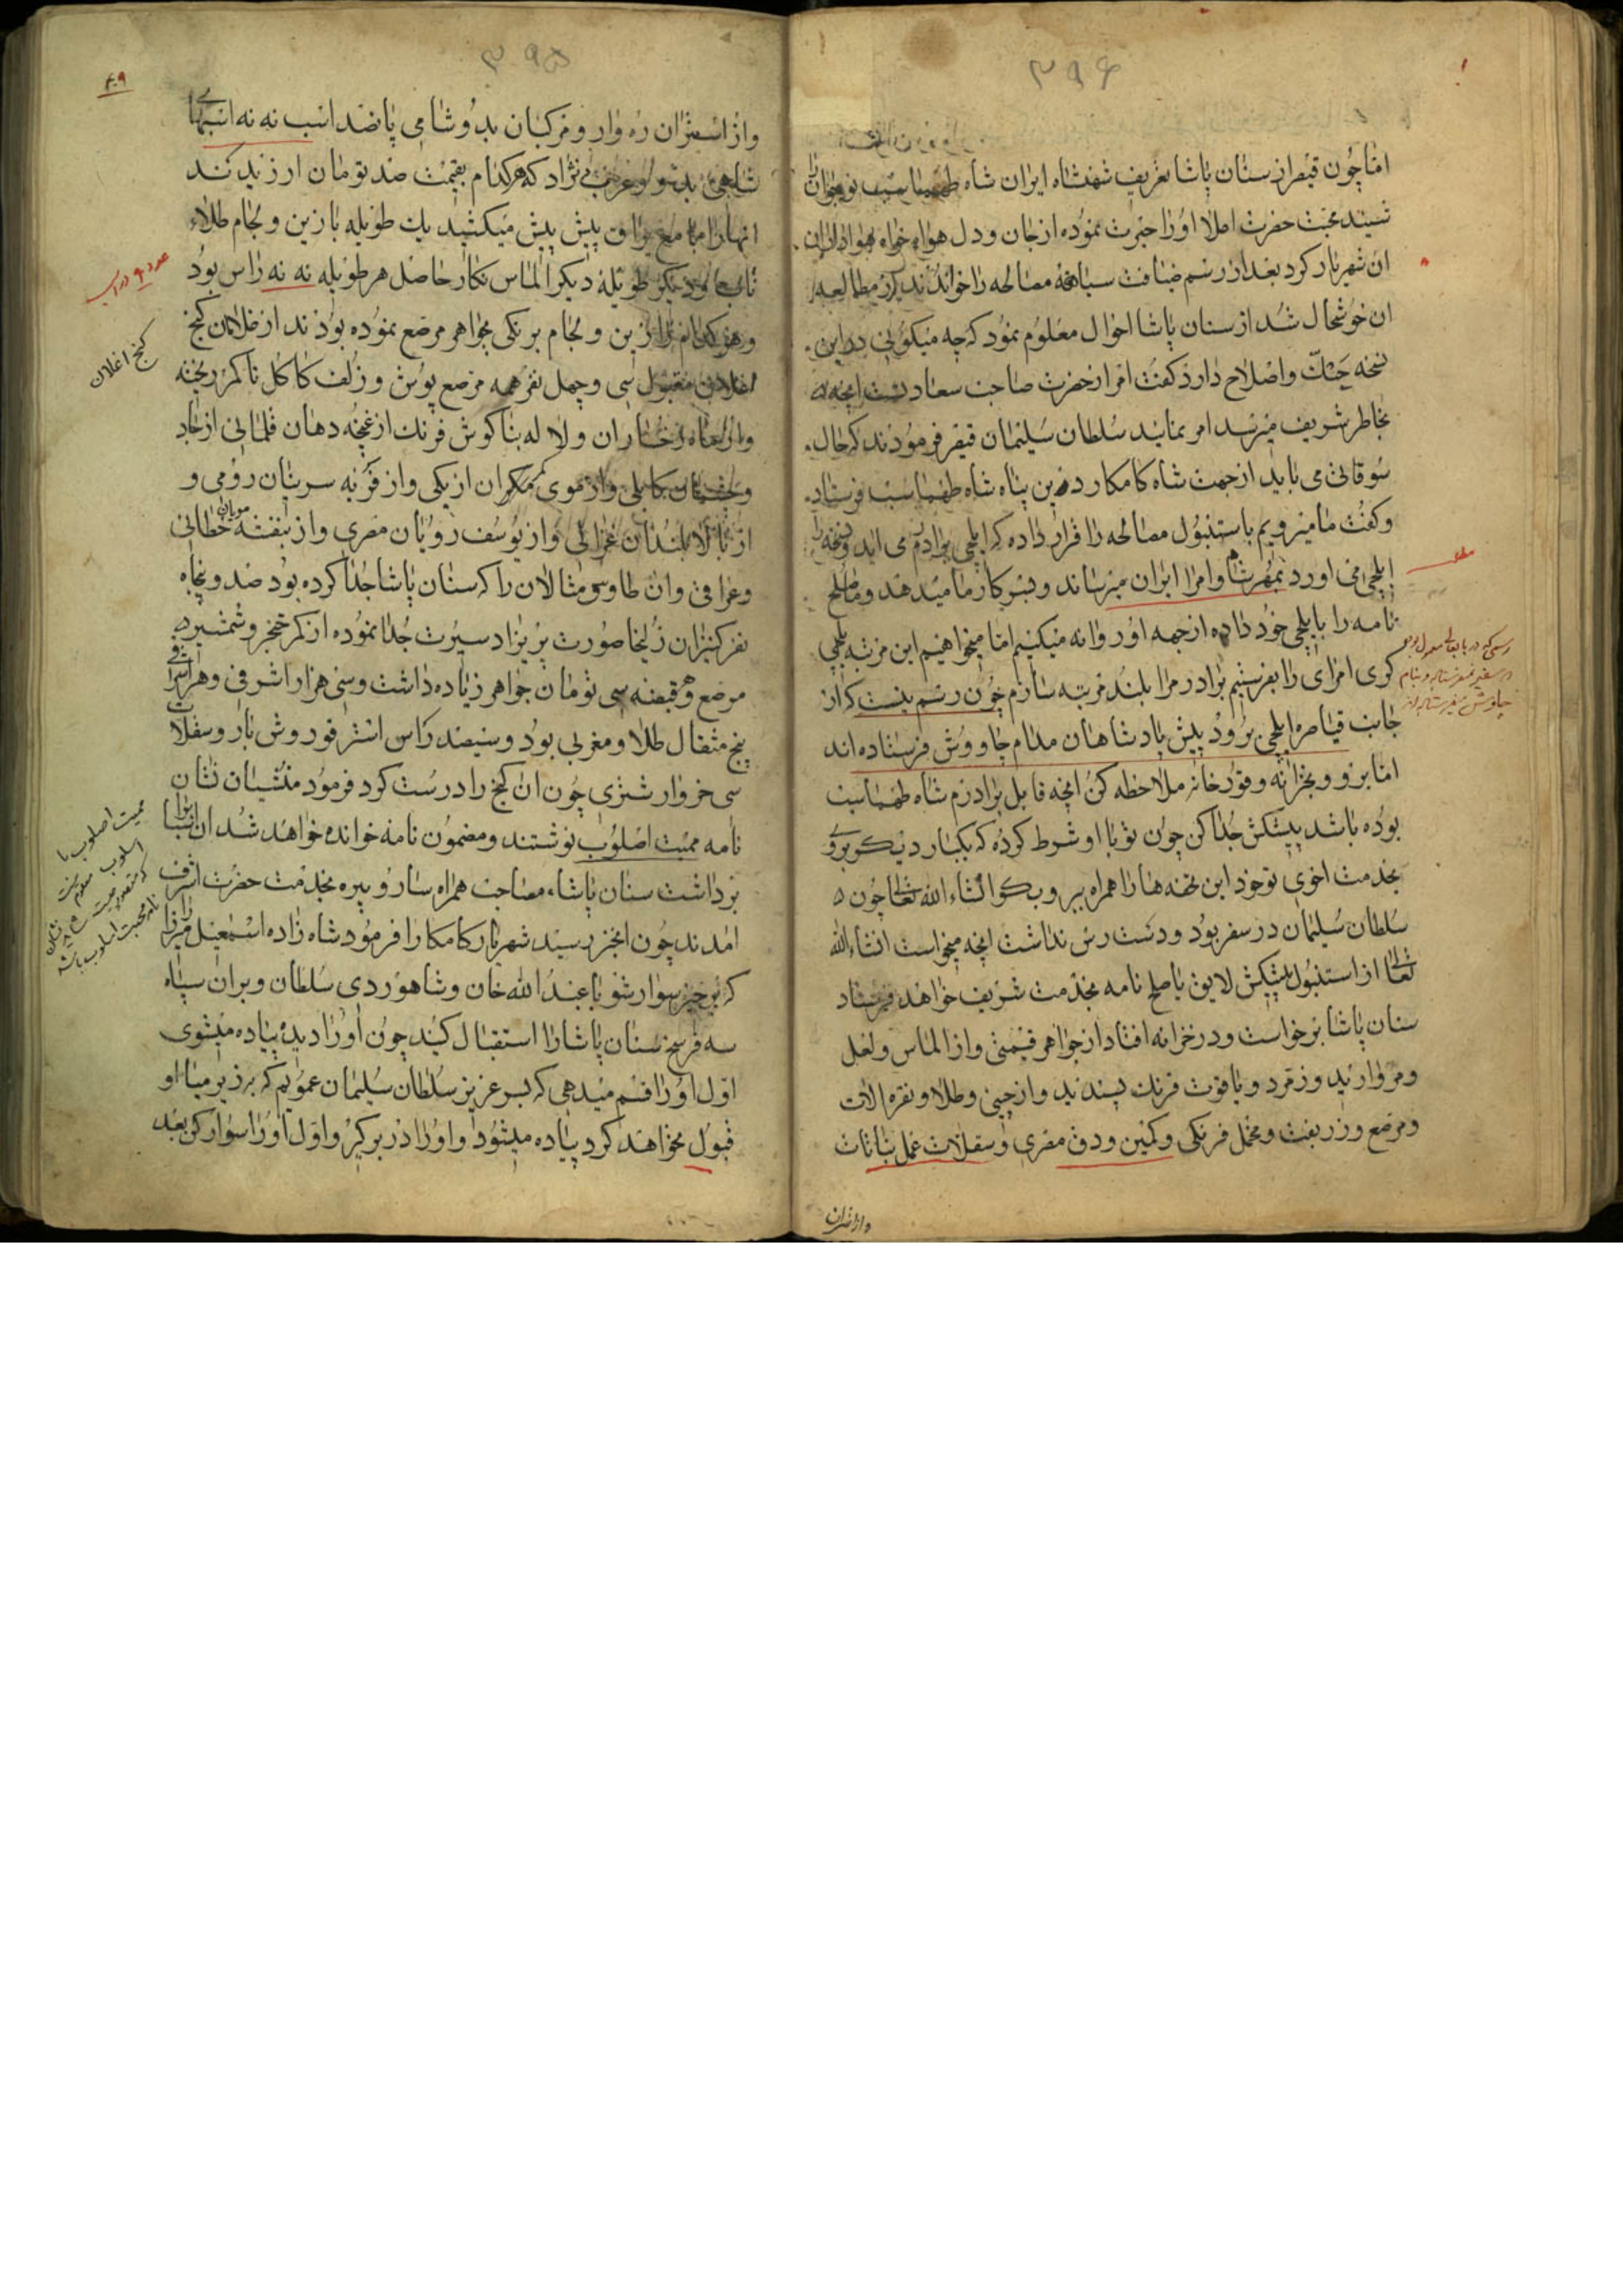 ۳۹۶
اما چون قیصر از سنان پاشا تعریف شهنشاه ایران شاه طهماسب نوجوان را
شنید محبت حضرت املا اورا حیرت نموده از جان و دل هواه خواه هواداران
ان شهریار کرد بعد از رسم ضیافت سیاهه مصالحه را خواندند بعد از مطالعه
ان خوشحال شد از سنان پاشا احوال معلوم نمود که چه میکوئی در این
نسخه حک و اصلاح دارد کفت امر از حضرت صاحب سعادتست انچه
بخاطر شریف میرسد امر نمایند سلطان سلیمان قیصر فرمودند که حال
سوقاتی می باید از جهت شاه کامکار دین پناه شاه طهماسب فرستاد
و کفت ما میرویم باستنبول مصالحه را قرار داده که ایلچی برادرم می اید و نسخه را
ایلچی می اورد بمهر شاه و امرا ایران میرساند و بسرکار ما میدهد و ما صلح
نامه را بایلچی خود داده از جمه او روانه میکنیم اما میخواهیم این مرتبه ایلچی
کری امرای را بفرستیم برادر مرا بلند مرتبه سازم چون رسم نیست که از
جانب قیاصره ایلچی برود پیش پادشاهان مدام چاووش فرستاده اند
اما برو و بخزانه و قورخانه ملاحظه کن انچه قابل برادرم شاه طهماسب
بوده باشد پیشکش جدا کن چون تو با او شرط کرده که یکبار دیکر بروی
بخدمت اخوی تو خود این تحفه ها را همراه ببر و بکو انشاء الله تعالی چون
سلطان سلیمان در سفر بود و دست رس نداشت انچه میخواست انشاءالله
تعالی از استنبول پیشکش لایق با صلح نامه بخدمت شریف خواهد فرستاد
سنان پاشا برخواست و در خزانه افتاد از جواهر قیمتی و از الماس و لعل
و مروارید و زمرد و یاقوت فرنک پسندید و از چینی و طلا و نقره الات
و مرصع و زربفت و مخمل فرنکی و کمین و دق مصری و سقلات عمل بناتات
و از استران
۳۹۵
۴۰۹
و از استران ره وار و مرکبان بدوشامی پانصد اسب نه نه اسبهای
شاهی بدو و عربی نژاد که هر کدام بقیمت صد تومان ارزید کند
انهارا با مع یراق پیش پیش میکشید یک طویله با زین و لجام طلاء
ناب و دیکر طویله دیکر الماس نکار حاصل هر طویله نه نه راس بود
و هر کدام را زین و لجام برنکی بجواهر مرصع نموده بودند از غلامان کنج
اغلان مقبول سی و چهل نفر همه مرصع پوش و زلف کاکل تا کمر ریخته
و از ماه رخساران و لاله بناکوش فرنک از غنچه دهان قلماقی از حاد
و چشمان کابلی و از موی کمران ازبکی و از قرنه سربنان رومی و
از بالا بلندان عراقی و از یوسف رویان مصری و از بنفشه مویان خطائی
و عراقی و ان طاوس مثالان را که سنان پاشا جدا کرده بود صد و پنجاه
نفر کنیزان زلیخا صورت پریزاد سیرت جدا نموده از کمر خنجر و شمشیر
مرصع و هر قبضه سی تومان جواهر زیاده داشت و سی هزار اشرفی و هر اشرفی
پنج مثقال طلاء مغربی بود و سیصد راس استر قوروش بار و سقلات
سی خروار شتری چون ان کنج را درست کرد فرمود منشیان نشان
نامه محبت اصلوب نوشتند و مضمون نامه خوانده خواهد شد ان اسبابرا
برداشت سنان پاشاء مصاحب همراه ساروپیره بخدمت حضرت اشرف
امدند چون انخبر رسید شهریار کامکار افرمود شاه زاده اسمعیل میرزا را
که برخیز سوار شو با عبدالله خان و شاهوردی سلطان و بران سپاه
سه فرسخ سنان پاشارا استقبال کنید چون اورا دیدی پیاده میشوی
اول اورا قسم میدهی که بسر عزیز سلطان سلیمان عمویم که بزیر میا او
قبول نخواهد کرد پیاده میشود و اورا در بر کیر و اول اورا سوار کن بعد
کنج اغلان